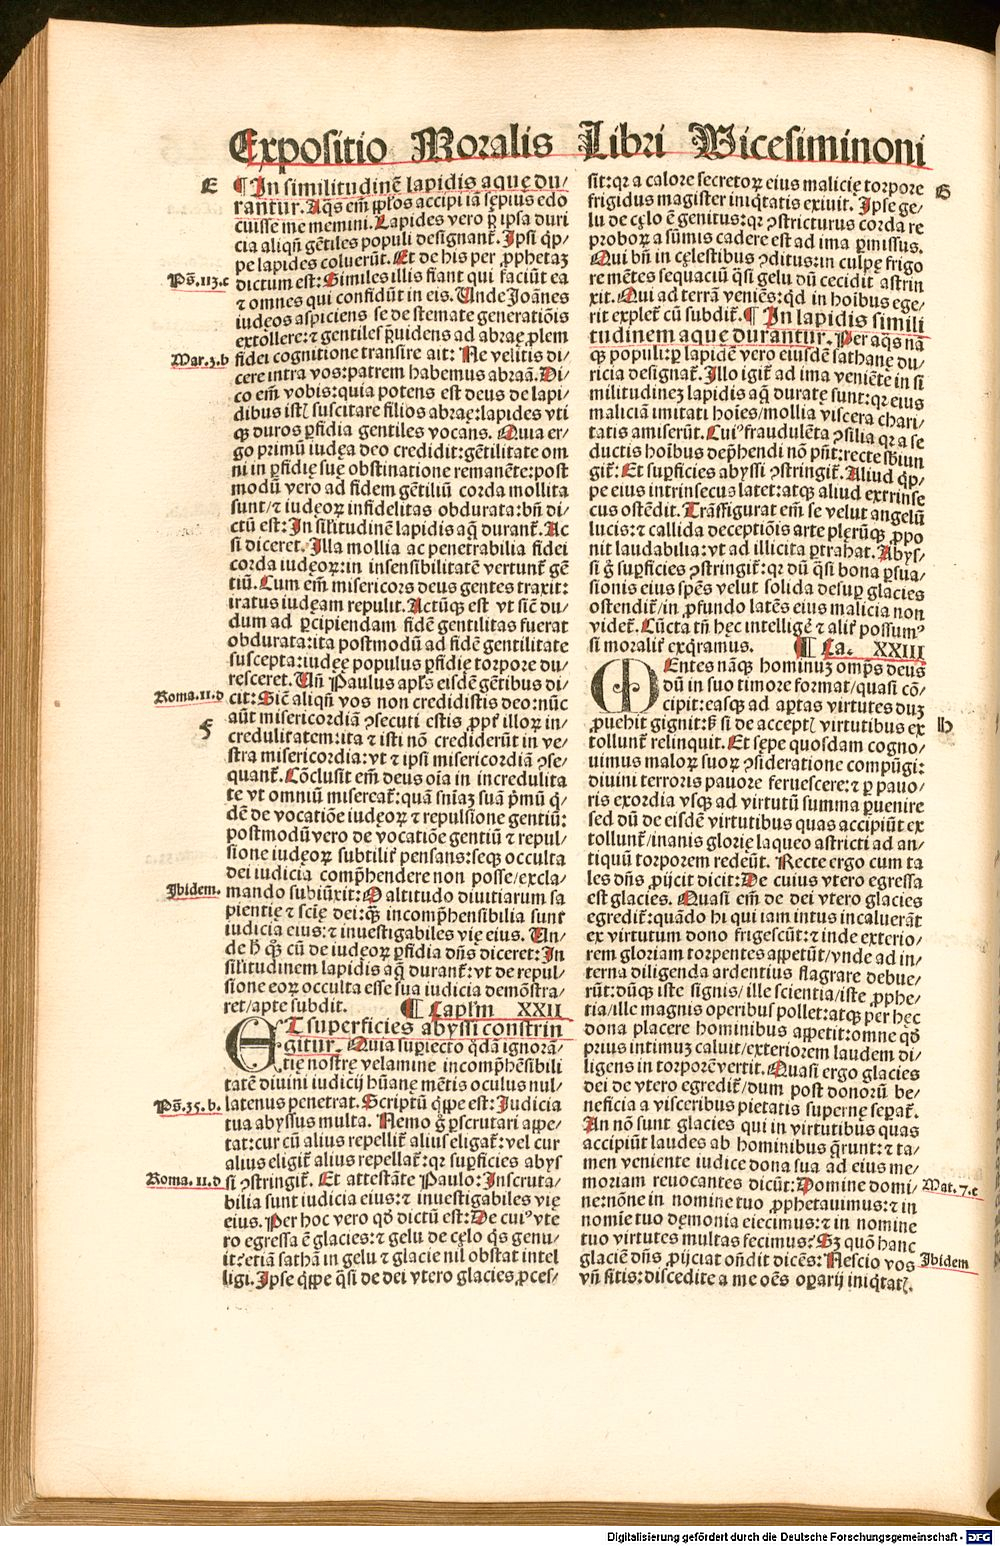 Expositio Moralis Libri Vicesiminoni
E
¶ In similitudinē lapidis aquę du/
rantur. Aq̄s em̄ ꝓp̄los accipi iā sępius edo
cuisse me memini. Lapides vero ꝓ ipsa duri
cia aliqn̄ gētiles populi designant᷑. Ipsi q̄p/
pe lapides coluerūt. Et de his per ꝓphetaꝫ
Ps̄.113.c
dictum est: Similes illis fiant qui faciūt ea
⁊ omnes qui confidūt in eis. Unde Joānes
iudęos aspiciens se de stemate generatiōis
extollere: ⁊ gentiles p̄uidens ad abraę plem
Mar.3.b
fidei cognitione transire ait: Ne velitis di/
cere intra vos: patrem habemus abraā. Di/
co em̄ vobis: quia potens est deus de lapi/
dibus istꝭ suscitare filios abraę: lapides vti
qꝫ duros ꝑfidia gentiles vocans. Quia er/
go primū iudęa deo credidit: gētilitate om
ni in ꝑfidię suę obstinatione remanēte: post
modū vero ad fidem gētiliū corda mollita
sunt/ ⁊ iudęoꝝ infidelitas obdurata: bn̄ di/
ctū est: In sil̄itudinē lapidis aq̄ durant᷑. Ac
si diceret. Illa mollia ac penetrabilia fidei
corda iudęoꝝ: in insensibilitatē vertunt᷑ gē
tiū. Cum em̄ misericors deus gentes traxit:
iratus iudęam repulit. Actūqꝫ est vt sic̄ du/
dum ad ꝑcipiendam fidē gentilitas fuerat
obdurata: ita postmodū ad fidē gentilitate
suscepta: iudęę populus ꝑfidię torpore du/
resceret. Un̄ Paulus apl̄s eisdē gētibus di/
Roma.11.d
cit: Sic̄ aliqn̄ vos non credidistis deo: nūc
F
aūt misericordiā ꝯsecuti estis ꝓpt᷑ illoꝝ in/
credulitatem: ita ⁊ isti nō crediderūt in ve/
stra misericordia: vt ⁊ ipsi misericordiā ꝯse/
quant᷑. Cōclusit em̄ deus oīa in incredulita
te vt omniū misereat᷑: quā sn̄iaꝫ suā p̄mū q̄/
dē de vocatiōe iudęoꝝ ⁊ repulsione gentiū:
postmodū vero de vocatiōe gentiū ⁊ repul/
sione iudęoꝝ subtilit᷑ pensans: seqꝫ occulta
dei iudicia comp̄hendere non posse/ excla/
Ibidem.
mando subiūxit: O altitudo diuitiarum sa
pientię ⁊ scię dei: q̄ꝫ incomp̄hensibilia sunt
iudicia eius: ⁊ inuestigabiles vię eius. Un/
de h̄ qꝫ cū de iudęoꝝ ꝑfidia dn̄s diceret: In
sil̄itudinem lapidis aq̄ durant᷑: vt de repul/
sione eoꝝ occulta esse sua iudicia demōstra/
ret/ apte subdit. ¶ Capl̄m XXII
ET superficies abyssi constrin
gitur. Quia suꝑiecto q̄dā ignorā/
tię nostrę velamine incomp̄hēsibili
tatē diuini iudicij hūanę mētis oculus nul/
Ps̄.35.b.
latenus penetrat. Scriptū q̄ppe est: Judicia
tua abyssus multa. Nemo g̊ ꝑscrutari appe/
tat: cur cū alius repellit᷑ alius eligat᷑: vel cur
alius eligit᷑ alius repellat᷑: qꝛ suꝑficies abys
Roma.11.d
si ꝯstringit᷑. Et attestāte Paulo: Inscruta/
bilia sunt iudicia eius: ⁊ inuestigabiles vię
eius. Per hoc vero qđ dictū est: De cuiꝰ vte
ro egressa ē glacies: ⁊ gelu de cęlo q̄s genu/
it: etiā sathā in gelu ⁊ glacie nil obstat intel
ligi. Ipse q̄ppe q̄si de dei vtero glacies ꝓces/
sit: qꝛ a calore secretoꝝ eius malicię torpore
G
frigidus magister iniq̄tatis exiuit. Ipse ge/
lu de cęlo ē genitus: qꝛ ꝯstricturus corda re
proboꝝ a sūmis cadere est ad ima ꝑmissus.
Qui bn̄ in cęlestibus ꝯditus: in culpę frigo
re mētes sequaciū q̄si gelu dū cecidit astrin
xit. Qui ad terrā veniēs: qđ in hoībus ege/
rit explet᷑ cū subdit᷑. ¶ In lapidis simili
tudinem aquę durantur. Per aq̄s nā
qꝫ populi: ꝑ lapidē vero eiusdē sathanę du/
ricia designat᷑. Illo igit᷑ ad ima veniēte in si
militudineꝫ lapidis aq̄ duratę sunt: qꝛ eius
maliciā imitati hoīes/ mollia viscera chari/
tatis amiserūt. Cuiꝰ fraudulēta ꝯsilia qꝛ a se
ductis hoībus dep̄hendi nō pn̄t: recte sbiun
git᷑: Et suꝑficies abyssi ꝯstringit᷑. Aliud q̄p/
pe eius intrinsecus latet: atqꝫ aliud extrinse
cus ostēdit. Trāsfigurat em̄ se velut angelū
lucis: ⁊ callida deceptiōis arte plęrūqꝫ ꝓpo
nit laudabilia: vt ad illicita ꝑtrahat. Abys/
si g̊ suꝑficies ꝯstringit᷑: qꝛ dū q̄si bona ꝑsua/
sionis eius spēs velut solida desuꝑ glacies
ostendit᷑/ in ꝓfundo latēs eius malicia non
videt᷑. Cūcta tn̄ hęc intellige᷑ ⁊ alit᷑ possumꝰ
si moralit᷑ exq̄ramus. ¶ Ca. XXIII
MEntes nāqꝫ hominuꝫ omp̄s deus
dū in suo timore format/ quasi cō/
cipit: easqꝫ ad aꝑtas virtutes duꝫ
H
ꝓuehit gignit: sꝫ si de acceptꝭ virtutibus ex
tollunt᷑ relinquit. Et sępe quosdam cogno/
uimus maloꝝ suoꝝ ꝯsideratione compūgi:
diuini terroris pauore feruescere: ⁊ ꝑ pauo/
ris exordia vsqꝫ ad virtutū summa ꝑuenire
sed dū de eisdē virtutibus quas accipiūt ex
tollunt᷑/ inanis glorię laqueo astricti ad an/
tiquū torporem redeūt. Recte ergo cum ta
les dn̄s ꝓijcit dicit: De cuius vtero egressa
est glacies. Quasi em̄ de dei vtero glacies
egredit᷑: quādo hi qui iam intus incaluerāt
ex virtutum dono frigescūt: ⁊ inde exterio/
rem gloriam torpentes appetūt/ vnde ad in/
terna diligenda ardentius flagrare debue/
rūt: dūqꝫ iste signis/ ille scientia/ iste ꝓphe/
tia/ ille magnis operibus pollet: atqꝫ per hęc
dona placere hominibus appetit: omne qđ
prius intimuꝫ caluit/ exteriorem laudem di/
ligens in torporē vertit. Quasi ergo glacies
dei de vtero egredit᷑/ dum post donoꝝ be/
neficia a visceribus pietatis supernę seꝑat᷑.
An nō sunt glacies qui in virtutibus quas
accipiūt laudes ab hominibus q̄runt: ⁊ ta/
men veniente iudice dona sua ad eius me/
moriam reuocantes dicūt: Domine domi/
Mat.7.c
ne: nōne in nomine tuo ꝓphetauimus: ⁊ in
nomīe tuo dęmonia eiecimus: ⁊ in nomine
tuo virtutes multas fecimus? Sꝫ quō hanc
glaciē dn̄s ꝓijciat on̄dit dicēs: Nescio vos
Ibidem
vn̄ sitis: discedite a me oēs oꝑarij iniq̄tatꝭ.